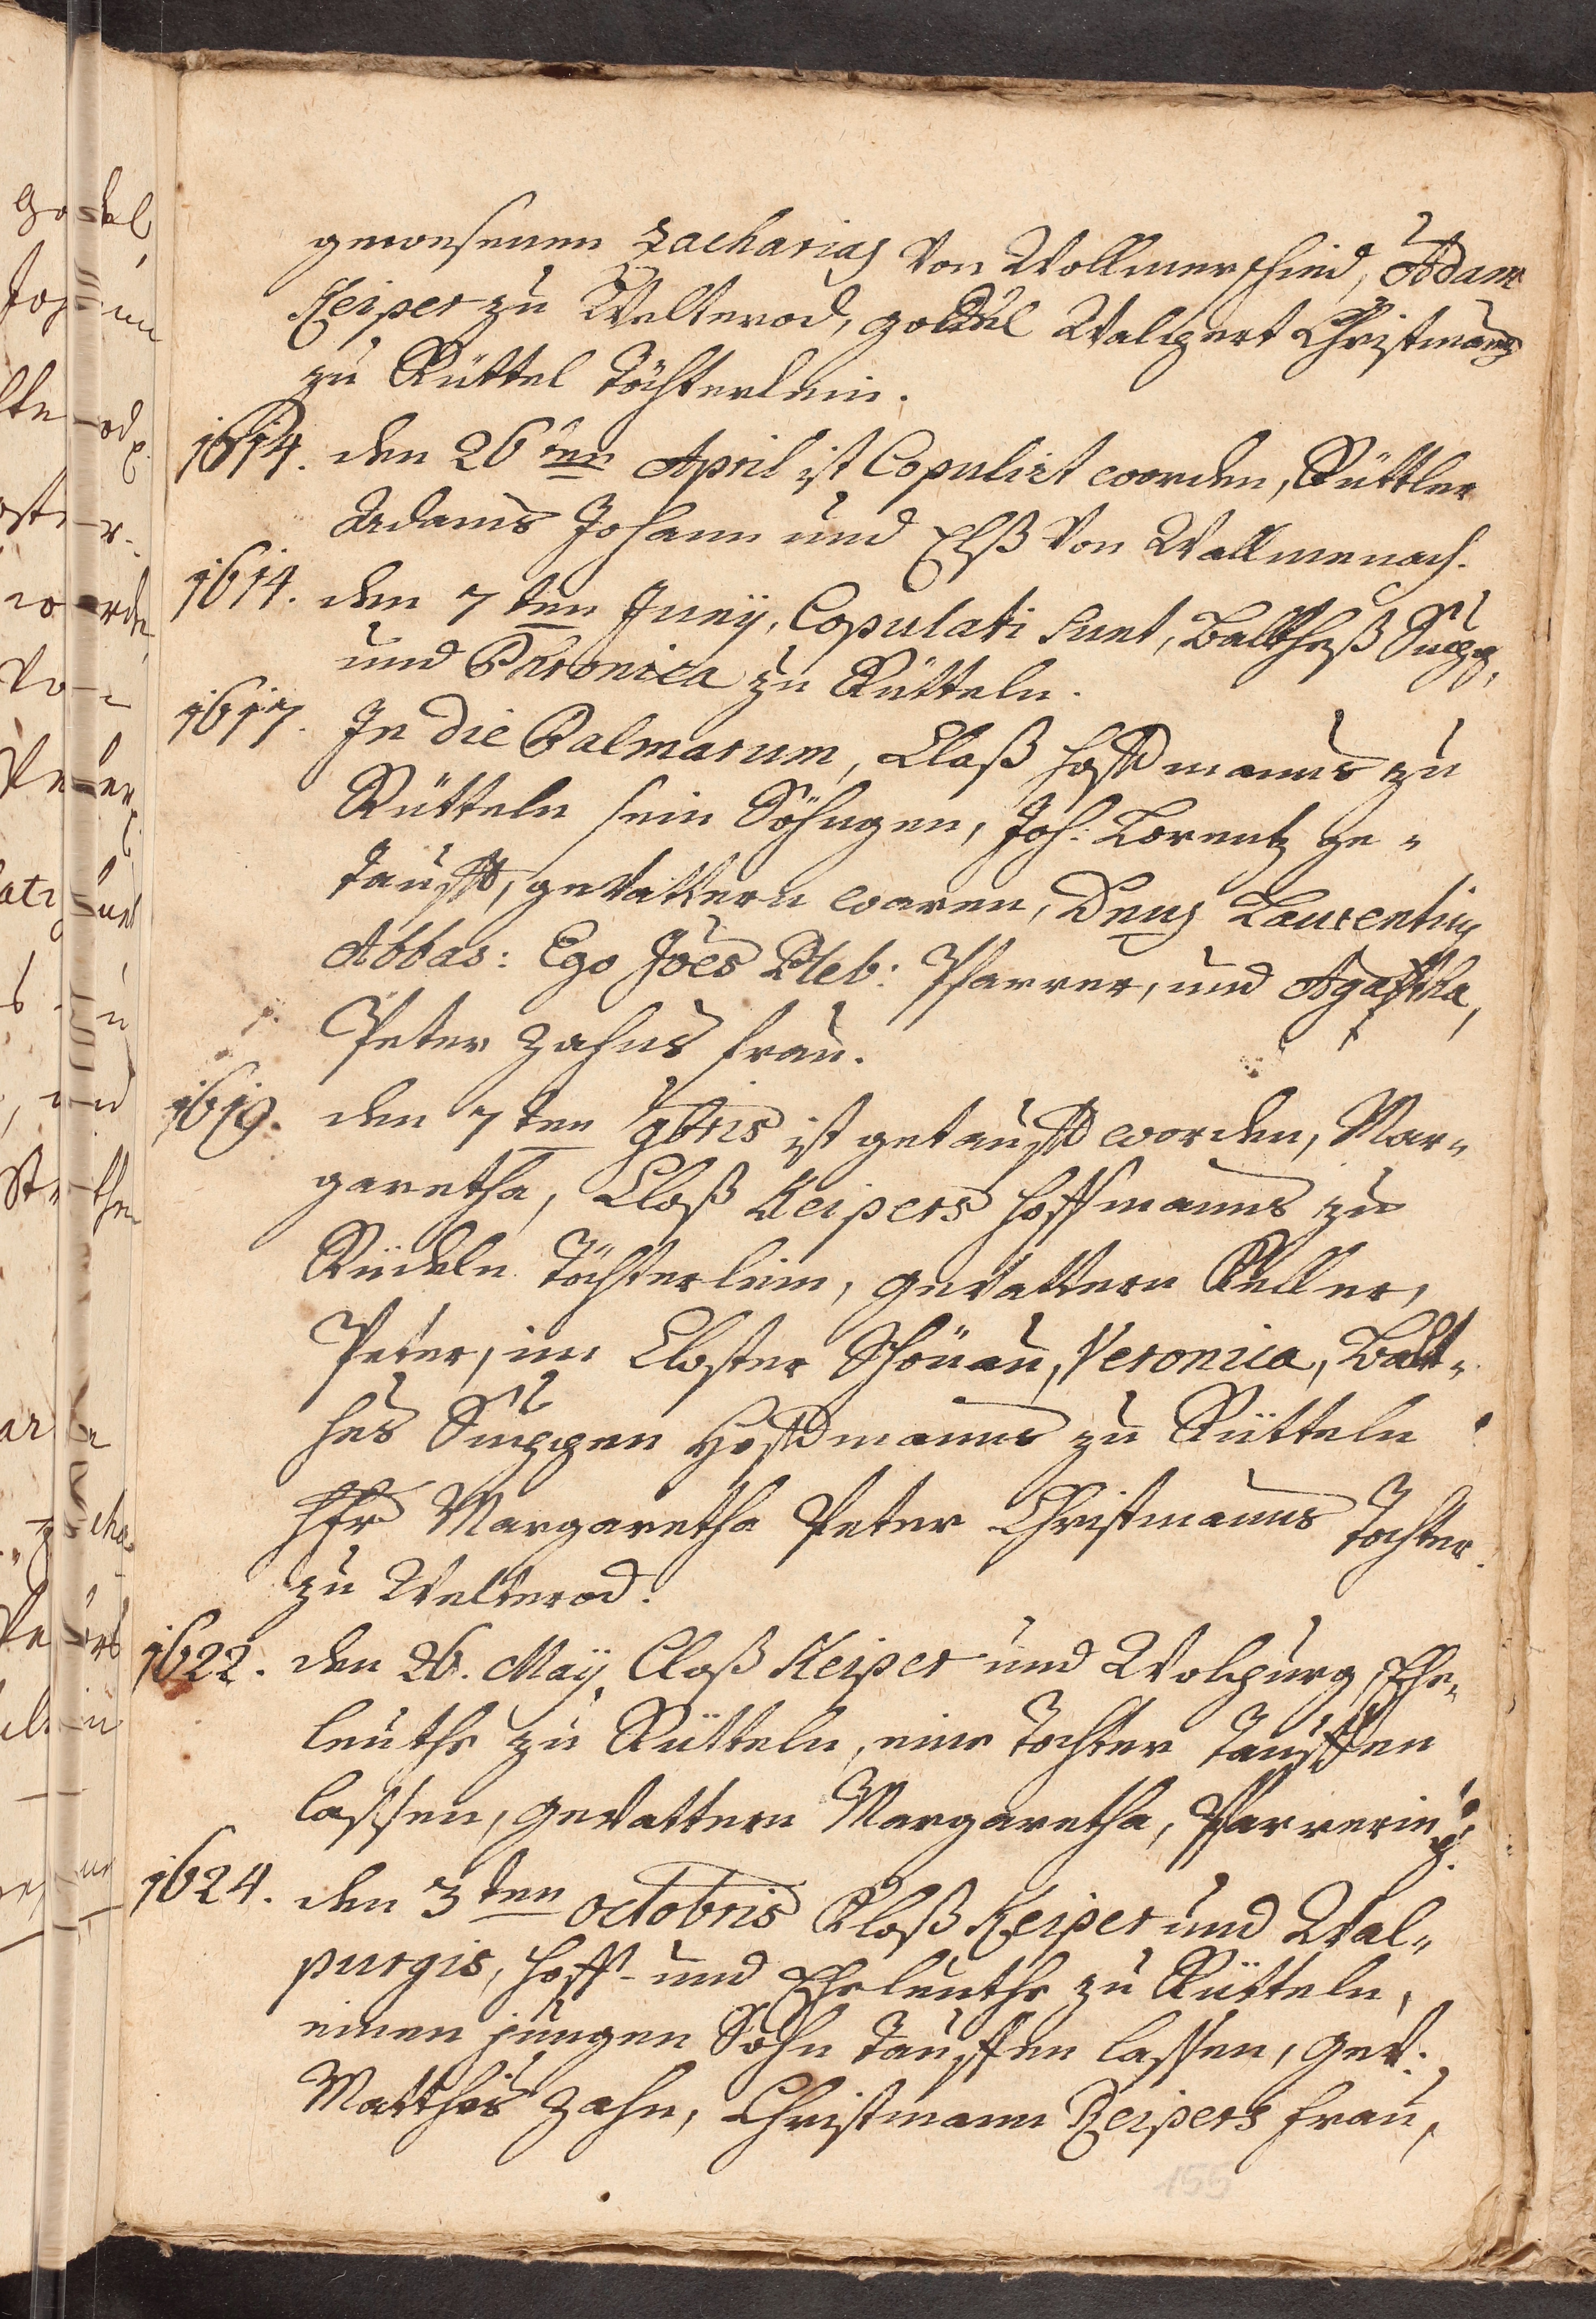 gewesenen Zacharias von Wollmerschied, Adam
Keiper zu Welterod, godel Walpert Christmans
zu Rüttel Töchterlein.
1614. den 26ten April ist Copulirt worden, Rüttler
Adams Johann und Elß von Wallmenach.
1614. den 7ten Junÿ, Copulati sunt, Balthaß Supp,
und Phronica zu Rütteln.
1617. In die Palmarum, Claß Hoffmanns zu
Rütteln sein Söhngen, Joh: Lorentz ge-
taufft, gevattern waren, Dens Laurentius
Abbas: Ego Joes Pleb: Pfarrer, und Agatha,
Peter Zahns frau.
1619. den 7ten 9bris ist getaufft worden, Mar-
garetha, Claß Keipers Hoffmanns zu
Rüdeln Töchterlein, gevattern Keller,
Peter, im Closter Schönau, Veronica, Balt-
hes Suppen Hoffmanns zu Rütteln
Hfr Margaretha Peter Christmanns Tochter
zu Welterod.
1622. den 26. Maÿ, Claß Keiper und Wolpurg, Ehe-
leuthe zu Rütteln, eine Tochter Tauffen
lassen, gevattern Margaretha, Pfarrerin p.
1624. den 3ten octobris Cloß Keiper und Wal-
purgis, Hoff- und Eheleuthe zu Rütteln,
einen jungen Sohn Tauffen lassen, gev.
Matthes Zahn, Christmann Keipers frau,
155